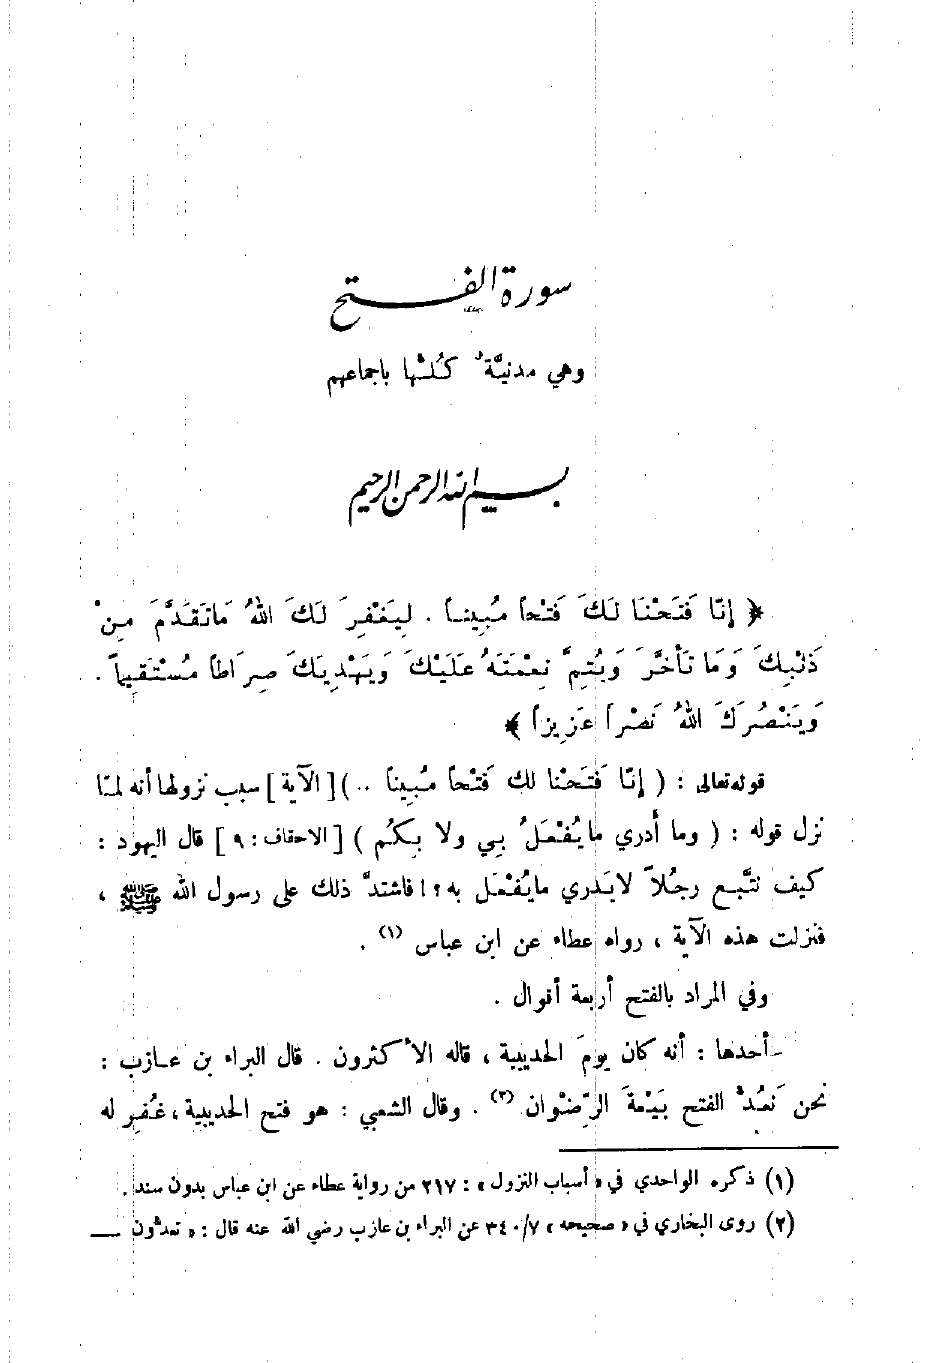 سورة الفتح
وهي مدنيَّةٌ كُلّها باجماعهم
بسم الله الرحمن الرحيم
﴿ إنَّا فَتَحْنَا لَكَ فَتْحاً مُبِيناً . لِيَغْفِرَ لَكَ اللهُ مَاتَقَدَّمَ مِنْ
ذَنْبِكَ وَمَا تَأَخَّرَ وَيُتِمَّ نِعْمَتَهُ عَلَيْكَ وَيَهْدِيَكَ صِرَاطاً مُسْتَقِيماً .
وَيَنْصُرَكَ اللهُ نَصْراً عَزِيزاً ﴾
قوله تعالى : ( إنَّا فَتَحْنا لك فَتْحاً مُبِيناً .. ) [ الآية ] سبب نزولها أنه لمّا
نزل قوله : ( وما أدري مايُفْعَلُ بي ولا بِكُم ) [ الاحقاف : ٩ ] قال اليهود :
كيف نتَّبع رجُلاً لايَدري مايُفْعَل به ؟! فاشتدَّ ذلك على رسول الله ﷺ ،
فنزلت هذه الآية ، رواه عطاء عن ابن عباس (١) .
وفي المراد بالفتح أربعة أقوال .
أحدها : أنه كان يومَ الحديبية ، قاله الأكثرون . قال البراء بن عازب :
نحن نَعُدُّ الفتح بَيْعةَ الرِّضْوان (٢) . وقال الشعبي : هو فتح الحديبية ، غُفِر له
(١) ذكره الواحدي في « أسباب النزول » : ٢١٧ من رواية عطاء عن ابن عباس بدون سند .
(٢) روى البخاري في « صحيحه » ٣٤٠/٧ عن البراء بن عازب رضي الله عنه قال : « تعدّون ــ